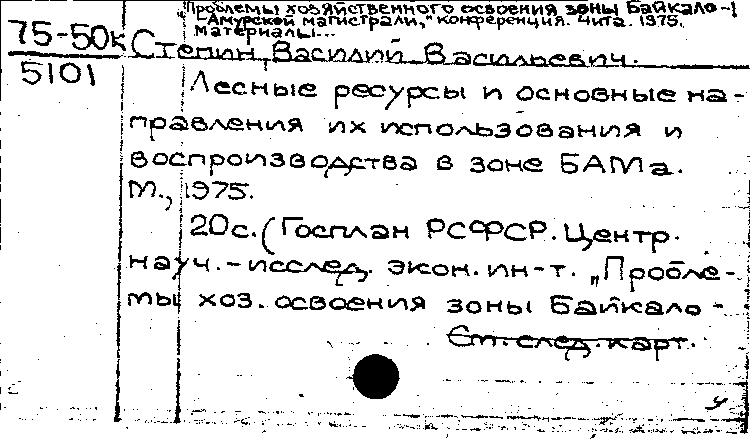 "Проблемы хозяйственного освоения зоны Байкало-
-Амурской магистрали," конференция. Чита. 1975.
Материалы...
75-50к
5101
Степин, Василий Васильевич.
Лесные ресурсы и основные на-
правления их использования и
воспроизводства в зоне БАМа.
М., 1975.
20с. (Госплан РСФСР. Центр.
науч.-исслед. экон. ин-т. „Пробле-
мы хоз. освоения зоны Байкало-
См. след. карт.